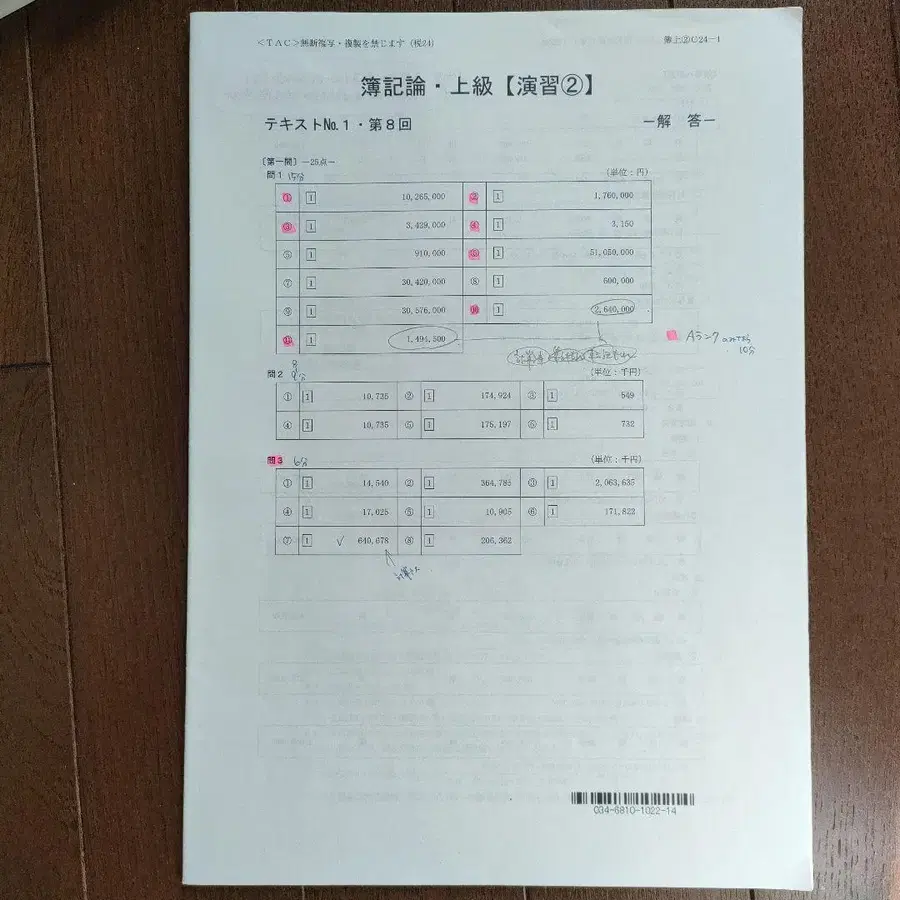 <TAC>無断複写・複製を禁じます (税24) 簿上②C24-1
簿記論・上級【演習②】
テキスト№1・第8回 -解 答-
〔第一問〕-25点-
問1 15分 (単位:円)
① 1 10,265,000 ② 1 1,760,000
③ 1 3,429,000 ④ 1 3,150
⑤ 1 910,000 ⑥ 1 51,050,000
⑦ 1 30,420,000 ⑧ 1 600,000
⑨ 1 30,576,000 ⑩ 1 2,640,000
⑪ 1 1,494,500
Aランク
10分
問2 (単位:千円)
① 1 10,735 ② 1 174,924 ③ 1 549
④ 1 10,735 ⑤ 1 175,197 ⑥ 1 732
問3 6分 (単位:千円)
① 1 14,540 ② 1 364,785 ③ 1 2,063,635
④ 1 17,025 ⑤ 1 10,905 ⑥ 1 171,822
⑦ 1 ✓ 640,678 ⑧ 1 206,362
034-6810-1022-14